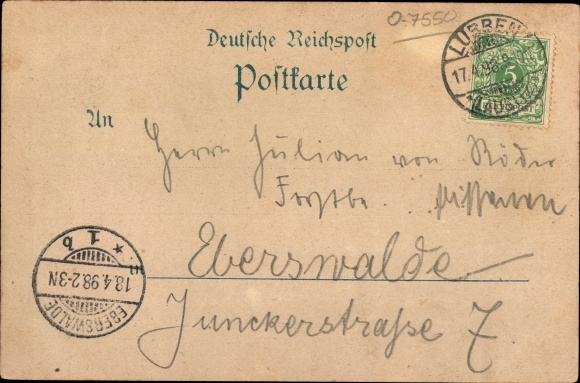 O-7550
LÜBBEN
17.4.98
(LAUSITZ)
5
Deutsche Reichspost
Postkarte
An
Herrn Julian von Röder
Forstbe.
Eberswalde
Junckerstraße 7
EBERSWALDE
18.4.98.2-3N
* 1b